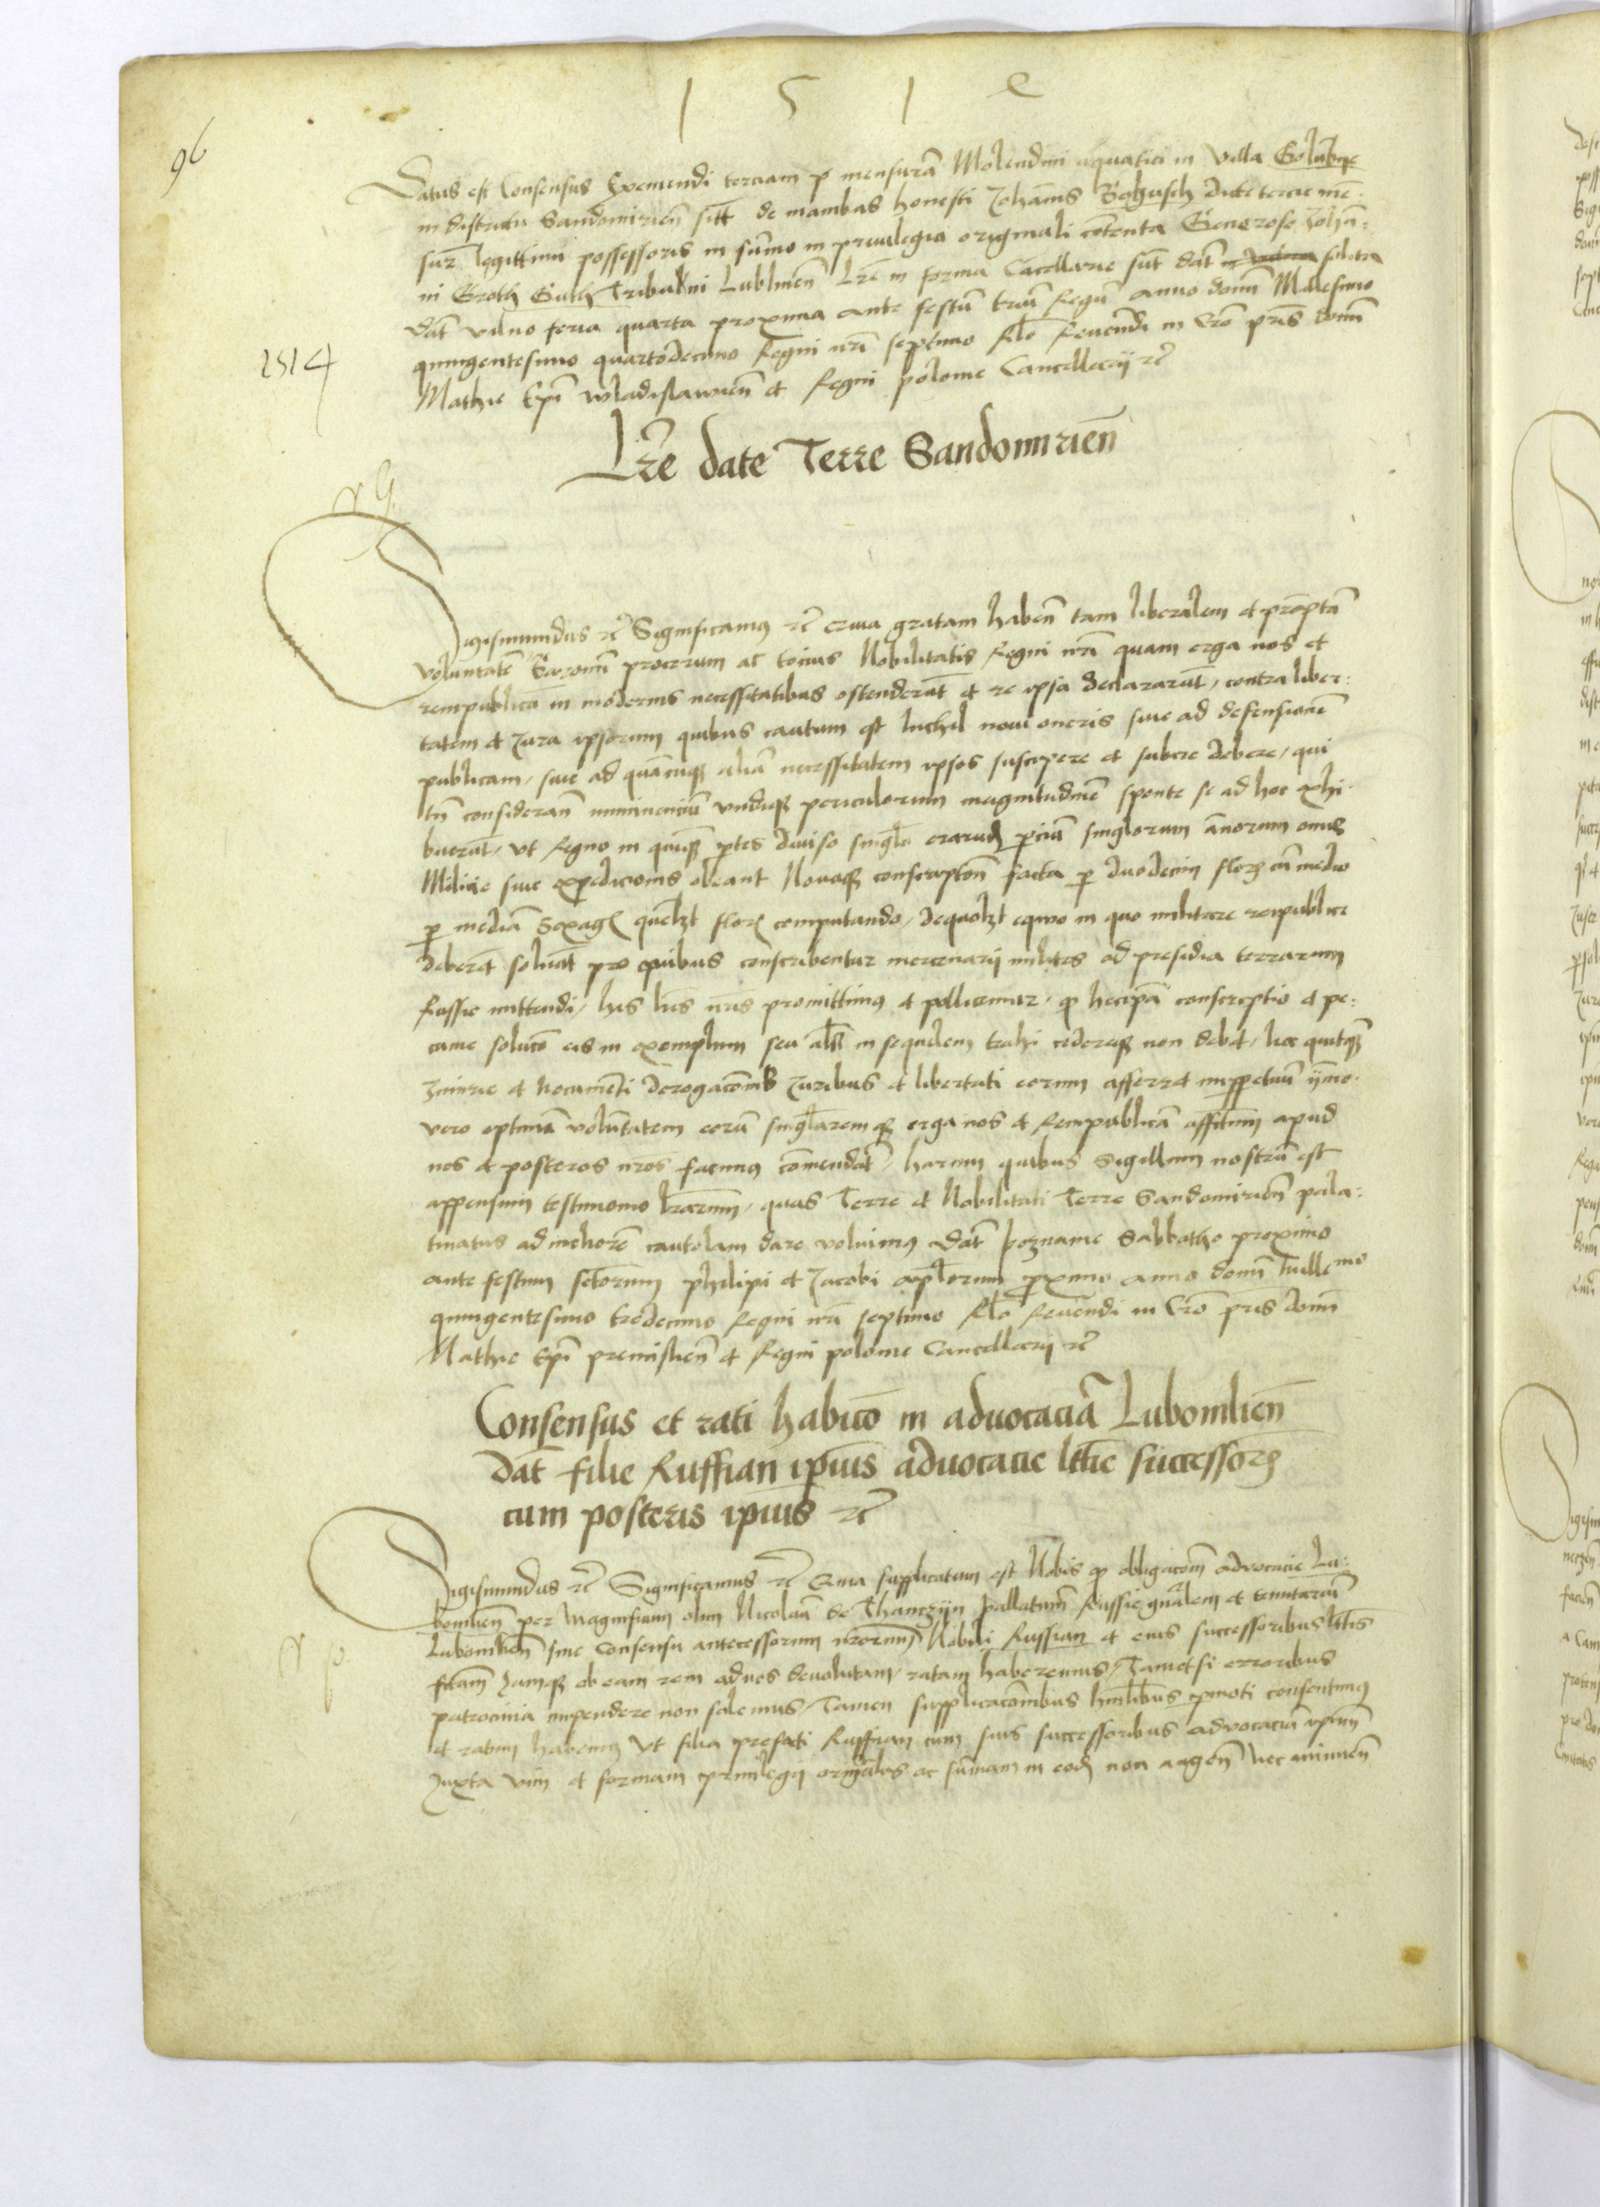 1 5 1 e
96
Datus est Consensus Exemendi terciam p mensurã Molendini aquatici in villa Golubye
in districtu Sandomirien̄ sitt̄ de manibus honesti Johan̄is Bohusch dicte tercie me-
sur̄ legittimi possessoris in sum̄o in priuilegio originali cōtenta Generoso Johan̄-
ni Groth Tribuno Lublinen̄ Lr̄e in forma Cācellarie sūt dat̄ soluta
Dat̄ vilno feria quarta proxima ante festū triū Regū anno domī Milesimo
1514
quingentesimo quartodecimo Regni nr̄i septimo Rl̄o Reuerēdi in Cr̄o pr̄is domī
Mathie Ep̄i wladislawien̄ et Regni polonie Cancellarij rc̄
Lr̄e date Terre Sandomirien̄
Sigismundus rc̄ Significamus rc̄ Quia gratam haben̄ tam liberalem et prōptā
voluntatē Baronū procerum ac tocius Nobilitatis Regni nr̄i quam erga nos et
rempublicā in modernis necessitatibus ostenderūt et re ipsa declararūt, contra liber-
tatem et Jura ipsorum quibus cautum est Nichil noui oneris siue ad defensionē
publicam, siue ad quācūq aliā necessitatem ipsos suscipere et subire debere, qui
tn̄ consideran̄ imminenciū vndiq periculorum magnitudinē sponte se ad hoc exhi-
buerūt, vt Regno in quinq ptes diuiso singl̄e earund pciū singlorum annorum onus
Milicie siue expedicionis obeant Nouaq conscriptōn̄ facta p duodecim flor cū medio
p mediā Sexag quel̄zt flor computando, de quol̄zt equo in quo militare reipublice
deberēt soluāt pro quibus conscribentur mercenarij milites ad presidia terrarum
Russie mittendi, his lr̄is nr̄is promittimus et pollicemur, qd hec ip̄a conscriptio et pe-
cunie solucō eis in exemplum seu al̄s in sequelam trahi cedereq non debet, nec quitq
Iniurie et Nocumēti derogacōnisue Juribus et libertati eorum afferret imppetuū ymo-
vero optimā volūtatem eorū singlaremq erga nos et Rempublicā affectum apud
nos et posteros nr̄os facimus cōmendat̄, harum quibus Sigillum nostrū est
appensum testimonio lr̄arum, quas Terre et Nobilitati Terre Sandomirien̄ pala-
tinatus ad meliorē cautelam dare voluimus Dat̄ poznanie Sabbatho proximo
ante festum sctōrum philipi et Jacobi aplōrum pximo anno domī Millemo
quingentesimo tredecimo Regni nr̄i septimo Rl̄o Reuerēdi in Cr̄o pr̄is domī
Mathie Ep̄i premislien̄ et Regni polonie Cancellarij rc̄
Consensus et rati habicō in aduocaciā Lubomlien̄
dat̄ filie Ruffian ip̄ius aduocacie lt̄tie successor
cum posteris ip̄ius rc̄
Sigismundus rc̄ Significamus rc̄ Quia supplicatum est Nobis qd obligacōn̄ aduocacie Lu-
bomlien̄ per Magnificum olim Nicolaū de Thanczijn pallatinū Russie gn̄alem et tenutariū
Lubomlien̄ sine Consensu antecessorum nr̄orum Nobili Russian et eius successoribus l̄t̄is
fctam Jamq ob eam rem ad nos deuolutam, ratam haberemus, Tametsi erroribus
patrocinia impendere non solemus, Tamen supplicacōnibus humilibus pmoti consentimus
et ratum habemus vt filia prefati Ruffian cum suis successoribus aduocaciā ip̄am
Juxta vim et formam priuilegij originalis ac sum̄am in eod non augen̄ nec minuen̄